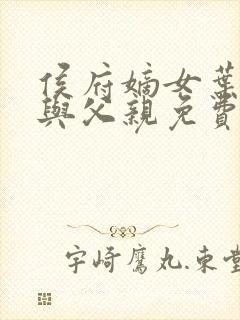 侯府嫡女葉
與父親免費
宇崎鷹丸.東堂